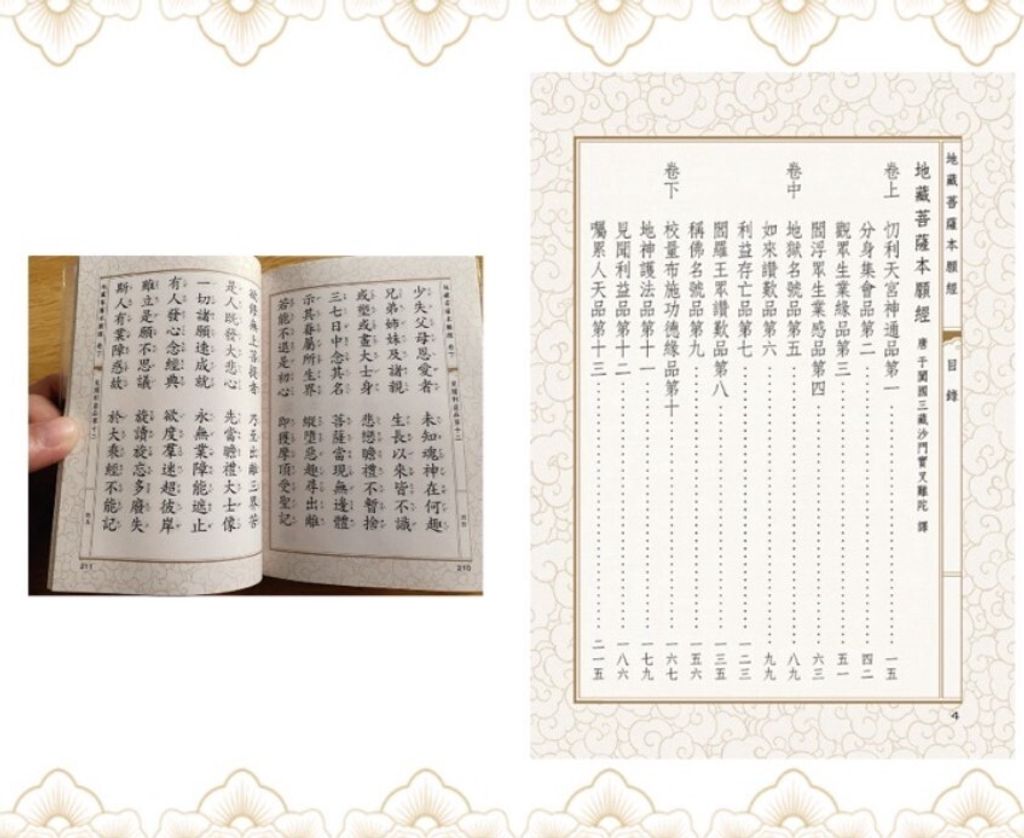 地藏菩薩本願經 卷下 見聞利益品第十二
少失父母恩愛者 未知魂神在何趣
兄弟姊妹及諸親 生長以來皆不識
或塑或畫大士身 悲戀瞻禮不暫捨
三七日中念其名 菩薩當現無邊體
示其眷屬所生界 縱墮惡趣尋出離
若能不退是初心 即獲摩頂受聖記
210
欲修無上菩提者 乃至出離三界苦
是人既發大悲心 先當瞻禮大士像
一切諸願速成就 永無業障能遮止
有人發心念經典 欲度群迷超彼岸
雖立是願不思議 旋讀旋忘多廢失
斯人有業障惑故 於大乘經不能記
地藏菩薩本願經 卷下 見聞利益品第十二
211
地藏菩薩本願經 目錄
地藏菩薩本願經 唐于闐國三藏沙門實叉難陀 譯
卷上 忉利天宮神通品第一 一五
分身集會品第二 四二
觀眾生業緣品第三 五一
閻浮眾生業感品第四 六三
卷中 地獄名號品第五 八九
如來讚歎品第六 九九
利益存亡品第七 一二三
閻羅王眾讚歎品第八 一三五
稱佛名號品第九 一五六
卷下 校量布施功德緣品第十 一六七
地神護法品第十一 一七九
見聞利益品第十二 一八六
囑累人天品第十三 二一五
4